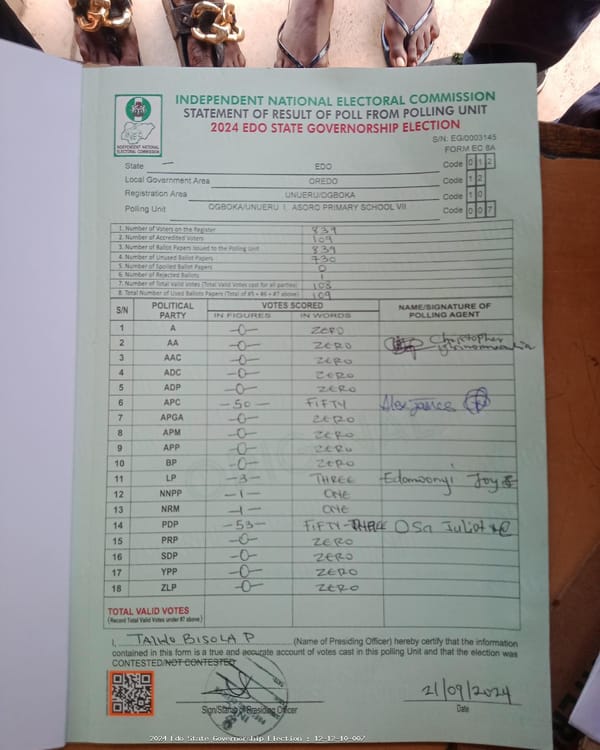 INDEPENDENT NATIONAL ELECTORAL COMMISSION
STATEMENT OF RESULT OF POLL FROM POLLING UNIT
2024 EDO STATE GOVERNORSHIP ELECTION
INDEPENDENT NATIONAL ELECTORAL COMMISSION
S/N: EG/0003145
FORM EC 8A
State EDO Code 012
Local Government Area OREDO Code 12
Registration Area UNUERU/OGBOKA Code 10
Polling Unit OGBOKA/UNUERU 1, ASORO PRIMARY SCHOOL VII Code 007
1. Number of Voters on the Register 839
2. Number of Accredited Voters 109
3. Number of Ballot Papers Issued to the Polling Unit 839
4. Number of Unused Ballot Papers 730
5. Number of Spoiled Ballot Papers 0
6. Number of Rejected Ballots 1
7. Number of Total Valid Votes (Total Valid Votes cast for all parties) 108
8. Total Number of Used Ballots Papers (Total of #5 + #6 + #7 above) 109
S/N POLITICAL PARTY VOTES SCORED NAME/SIGNATURE OF POLLING AGENT
IN FIGURES IN WORDS
1 A -0- ZERO
2 AA -0- ZERO Christopher
3 AAC -0- ZERO
4 ADC -0- ZERO
5 ADP -0- ZERO
6 APC -50- FIFTY Alex James
7 APGA -0- ZERO
8 APM -0- ZERO
9 APP -0- ZERO
10 BP -0- ZERO
11 LP -3- THREE Edomwonyi Joy
12 NNPP -1- ONE
13 NRM -1- ONE
14 PDP -53- FIFTY-THREE Osa Juliet
15 PRP -0- ZERO
16 SDP -0- ZERO
17 YPP -0- ZERO
18 ZLP -0- ZERO
TOTAL VALID VOTES
(Record Total Valid Votes under #7 above)
I, TAIWO BISOLA P (Name of Presiding Officer) hereby certify that the information
contained in this form is a true and accurate account of votes cast in this polling Unit and that the election was
CONTESTED/NOT CONTESTED
21/09/2024
Sign/Stamp of Presiding Officer Date
2024 Edo State Governorship Election : 12-12-10-007